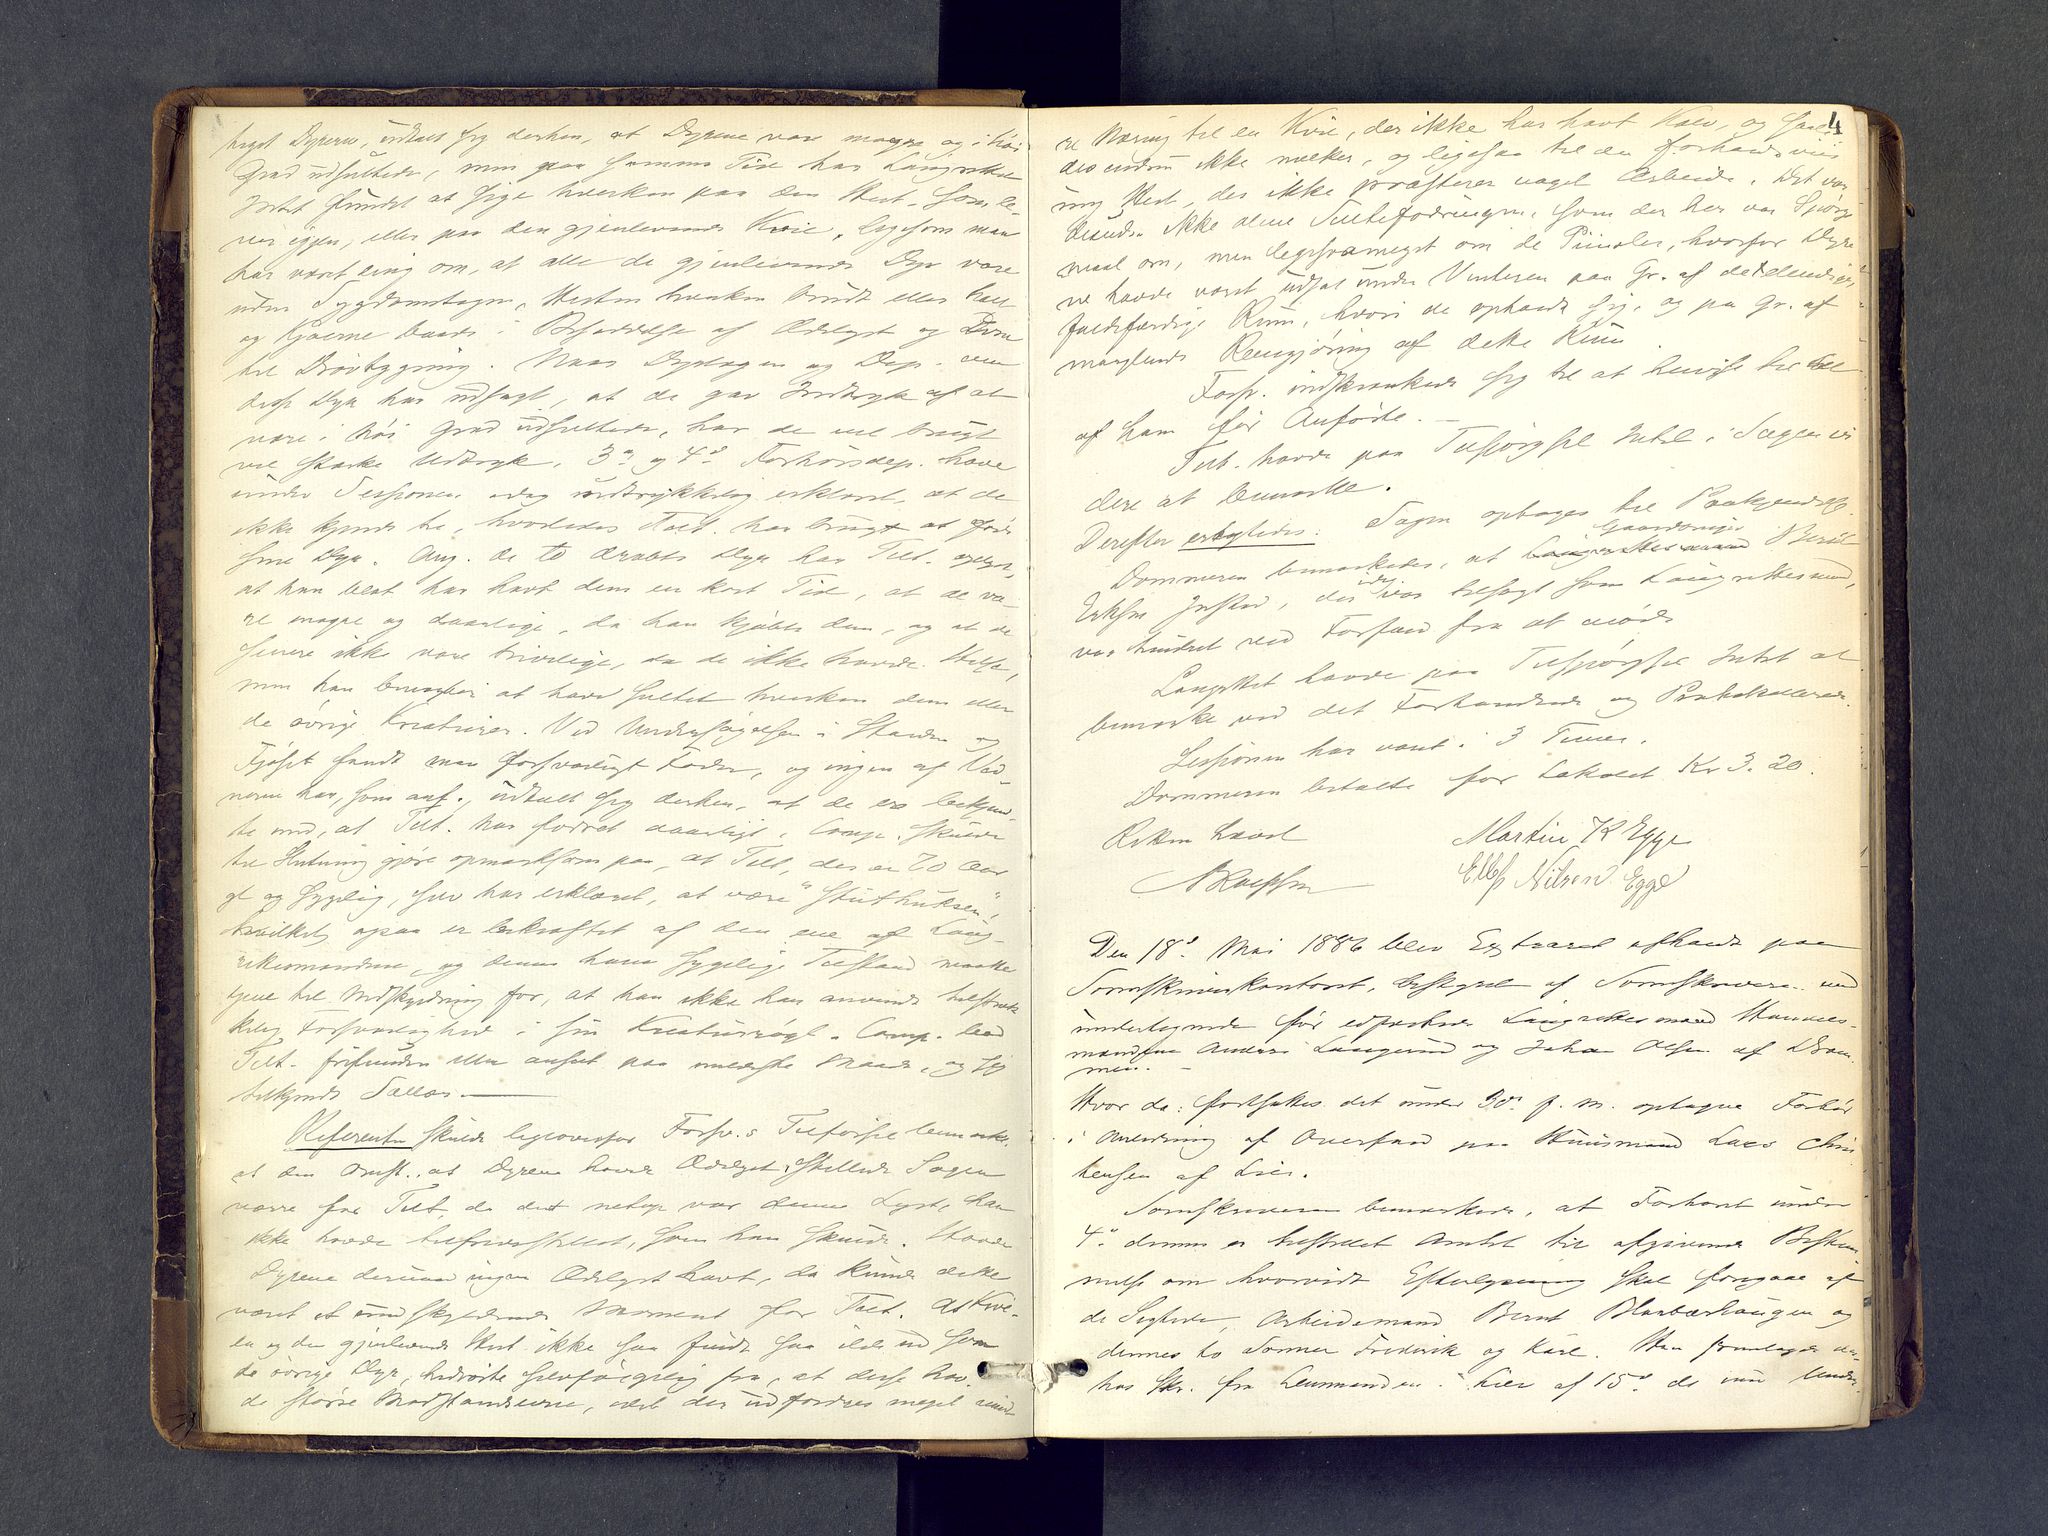 seget Dyrene, udtalt sig derhen, at Dyrene vare magre og i høi
Grad udsultede, men paa samme Tid har Lagretten
Intet fundet at sige hverken paa den Hest, som le-
ver igjen, eller paa den gjenlevende Kvie, ligesom man
har været enig om, at alle de gjenlevende Dyr vare
uden Sygdomstegn, Hesten hverken brudt eller halt
og Kjørne baade i Besiddelse af Ædelyst og Drev
til Drøvtygning. Naar Dyrlægen og Dep. om
disse Dyr har udsagt, at de gav Indtryk af at
være i høi Grad udsultede, har de vel brugt
vel stærke Udtryk. 3die og 4de Forhørsdep. have
under Sessionen idag udtrykkelig erklæret, at de
ikke kjende til, hvorledes Tilt. har brugt at føde
sine Dyr. Ang. de to dræbte Dyr har Tilt. oplyst,
at han blot har havt dem en kort Tid, at de va-
re magre og daarlige, da han kjøbte dem, og at de
senere ikke vare trivelige, da de ikke havde Helse,
men han benægter at have sultet hverken dem eller
de øvrige Kreaturer. Ved Undersøgelsen i Stalden og
Fjøset fandt man forsvarligt Foder, og ingen af Vid-
nerne har, som anf., udtalt sig derhen, at de ere bekjen-
te med, at Tilt. har fodret daarligt. Comp. skulde
til Slutning gjøre opmærksom paa, at Tilt., der er 70 Aar
gl. og sygelig, selv har erklæret, at være "stuthuksen",
hvilket ogsaa er bekræftet af den ene af Lag-
rettesmændene, og denne hans sygelige Tilstand maatte
tjene til Undskyldning for, at han ikke har anvendt tilstræk-
kelig Forsvarlighed i sin Kreaturrøgt. Comp. bad
Tilt. frifunden eller anseet paa mildeste Maade, og sig
tilkjendt Sallær.
Referenten skulde ligeoverfor Forsv.s Tilførsel bemærke,
at den Omst., at Dyrene havde Ædelyst, stillede Sagen
værre for Tilt. da det netop var denne Lyst, han
ikke havde tilfredsstillet, som han skulde. Havde
Dyrene derimod ingen Ædelyst havt, da kunde dette
været et undskyldende Moment for Tilt. At Kvi-
en og den gjenlevende Hest ikke saa fuldt saa ilde ud som
de øvrige Dyr, hidrørte selvfølgelig fra, at disse hav-
de større Modstandsevne, idet der udfordres meget mind-
4
re Næring til en Kvie, der ikke har havt Kalv, og saale-
des endnu ikke melker, og ligesaa til en forholdsviis
ung Hest, der ikke præsterer noget Arbeide. Det var
desuden ikke alene Sultefodringen, som der her var Spørgs-
maal om, men ligesaameget om de Pinsler, hvorfor Dyre-
ne havde været udsat under Vinteren paa Gr. af det elendige,
faldefærdige Rum, hvori de opholdt sig, og paa Gr. af
manglende Rengjøring af dette Rum.
Forsv. indskrænkede sig til at henvise til det
af ham før Anførte.
Tilt. havde paa Tilspørgsel Intet i Sagen vi-
dere at bemærke.
Derefter erkyndes: Sagen optages til Paakjendelse.
Gaardbruger
Dommeren bemærkede, at Lagrettesmand Beril
Eriksen Justad, der idag var tilsagt som Lagrettesmand,
var hindret ved Forfald fra at møde.
Lagrettet havde paa Tilspørgsel Intet at
bemærke ved det Forhandlede og Protokollerede.
Sessionen har varet i 3 Timer.
Dommeren betalte for Lokalet Kr 3.20.
Martin K Egge
Nilsen Egge
Den 18de Mai 1886 blev Extraret afholdt paa
Sorenskriverkontoret, bestyret af Sorenskriveren med
undertegnede før edfæstede Lagrettesmænd Hannes-
mændene Anders Langerud og Johan Olsen af Dram-
men.
Hvor da: fortsattes det under 30te f. M. optagne Forhør
i Anledning af Overfald paa Huusmand Lars Chri-
stensen af Lier.
Sorenskriveren bemærkede, at Forhøret under
4de dennes er tilstillet Amtet til afgivende Bestem-
melse om hvorvidt Efterlysning skal foregaae af
de Sigtede, Arbeidsmand Bernt Blaabærhaugen og
dennes to Sønner Frederik og Karl. Han fremlagde der-
hos Skr. fra Lensmanden i Lier af 15de ds med